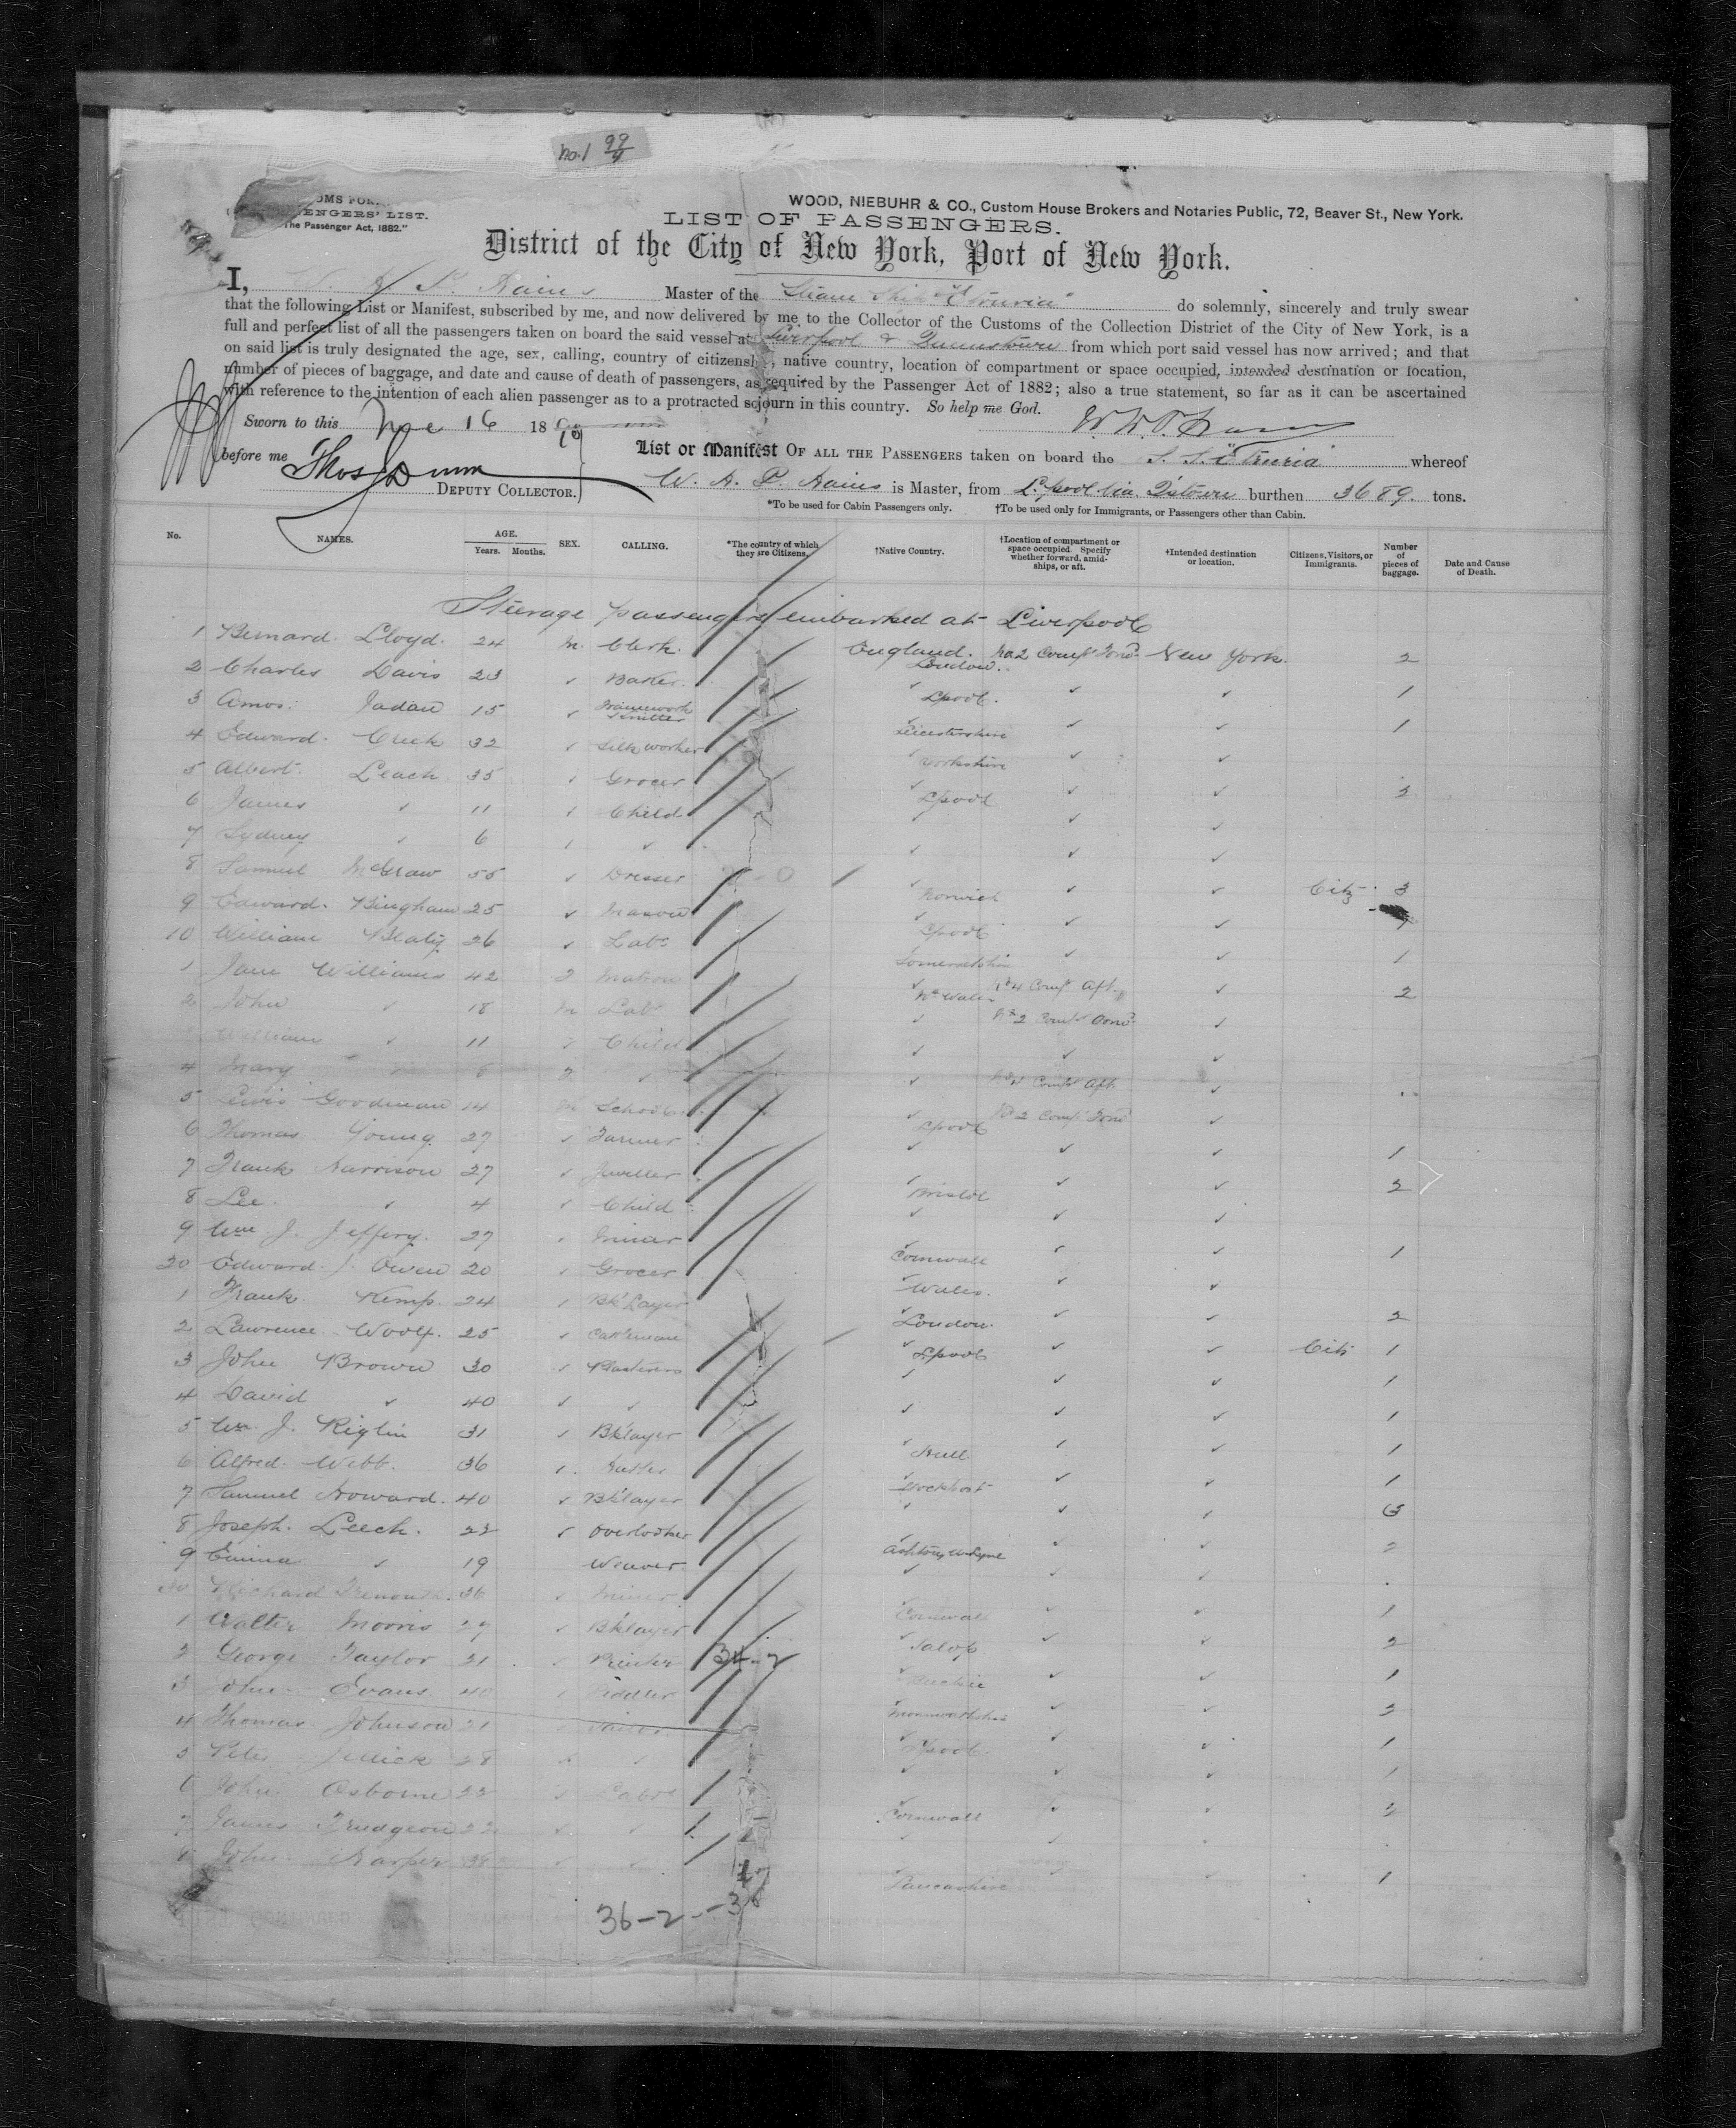 no.1 99/4
WOOD, NIEBUHR & CO., Custom House Brokers and Notaries Public, 72, Beaver St., New York.
ENGERS' LIST.
The Passenger Act, 1882."
LIST OF PASSENGERS.
District of the City of New York, Port of New York.
I, W. H. P. Hains Master of the Steam Ship "Etruria" do solemnly, sincerely and truly swear
that the following List or Manifest, subscribed by me, and now delivered by me to the Collector of the Customs of the Collection District of the City of New York, is a
full and perfect list of all the passengers taken on board the said vessel at Liverpool & Queenstown from which port said vessel has now arrived; and that
on said list is truly designated the age, sex, calling, country of citizenship, native country, location of compartment or space occupied, intended destination or location,
number of pieces of baggage, and date and cause of death of passengers, as required by the Passenger Act of 1882; also a true statement, so far as it can be ascertained
with reference to the intention of each alien passenger as to a protracted sojourn in this country. So help me God.
Sworn to this 16 18
before me Thos Dunn
DEPUTY COLLECTOR.
List or Manifest OF ALL THE PASSENGERS taken on board the S. S. "Etruria" whereof
W. H. P. Hains is Master, from L'pool via Q'stown burthen 3689 tons.
*To be used for Cabin Passengers only. †To be used only for Immigrants, or Passengers other than Cabin.
No. NAMES. AGE. Years. Months. SEX. CALLING. *The country of which they are Citizens. †Native Country. †Location of compartment or space occupied. Specify whether forward, amidships, or aft. †Intended destination or location. Citizens, Visitors, or Immigrants. Number of pieces of baggage. Date and Cause of Death.
Steerage passengers embarked at Liverpool
1 Bernard Lloyd. 24 m. Clerk. England. London. No 2 Compt Forwd. New York. 2
2 Charles Davis 23 ✓ Baker. ✓ Lpool. ✓ ✓ 1
3 Amos 15 ✓ Framework Knitter ✓ Leicestershire ✓ ✓ 1
4 Edward Creek 32 ✓ Silk worker ✓ Yorkshire ✓ ✓
5 Albert Leach 35 ✓ Grocer ✓ Lpool ✓ ✓ 2
6 James ✓ 11 ✓ Child ✓ ✓ ✓
7 Sydney ✓ 6 ✓ ✓ ✓ ✓ ✓
8 Samuel McGraw 55 ✓ Dresser ✓ Norwich ✓ ✓ Citz. 3
9 Edward Bingham 25 ✓ Mason ✓ Lpool ✓ ✓
10 William Beaty 26 ✓ Labr ✓ Somersetshire ✓ ✓ 1
1 Jane Williams 42 Matron ✓ Nth Wales No 4 Compt Aft. ✓ 2
2 John ✓ 18 m Labr ✓ No 2 Compt Forwd. ✓
William ✓ 11 ✓ Child ✓ ✓ ✓
4 Mary ✓ ✓ ✓ No 4 Compt Aft. ✓
5 Lewis Goodman 14 m School ✓ Lpool No 2 Compt Forwd ✓
6 Thomas Young 27 ✓ Farmer ✓ ✓ ✓ 1
7 Frank Harrison 27 ✓ Jeweller ✓ Bristol ✓ ✓ 2
8 Lee ✓ 4 ✓ Child ✓ ✓ ✓
9 Wm. J. Jeffery. 27 ✓ Miner ✓ Cornwall ✓ ✓ 1
20 Edward J. Owen 20 ✓ Grocer ✓ Wales. ✓ ✓
1 Frank Kemp. 24 ✓ Bk'layer ✓ London. ✓ ✓ 2
2 Lawrence Woolf. 25 ✓ Cattleman ✓ Lpool ✓ ✓ Citz 1
3 John Brown 30 ✓ Plasterers ✓ ✓ ✓ 1
4 David ✓ 40 ✓ ✓ ✓ ✓ ✓ 1
5 Wm. J. Riglin 31 ✓ Bk'layer ✓ Hull ✓ ✓ 1
6 Alfred Webb. 36 ✓ Hatter ✓ Stockport ✓ ✓ 1
7 Samuel Howard. 40 ✓ Bk'layer ✓ ✓ ✓ 3
8 Joseph Leech. 22 ✓ Overlooker ✓ Ashton u Lyne ✓ ✓ 2
9 Emma ✓ 19 Weaver ✓ ✓ ✓
30 Richard 36 ✓ Miner ✓ Cornwall ✓ ✓ 1
1 Walter Morris 27 ✓ Bk'layer ✓ Salop ✓ ✓ 2
2 George Taylor 21 ✓ 34-2 ✓ ✓ ✓ 1
3 John Evans 40 ✓ ✓ Monmouthshire ✓ ✓ 2
4 Thomas Johnson 21 ✓ Lpool. ✓ ✓ 1
5 Peter 28 ✓ ✓ ✓ ✓ ✓ 1
6 John Osborne 22 ✓ Labr ✓ Cornwall ✓ ✓ 2
7 James Trudgeon 22 ✓ ✓ ✓ ✓ ✓
8 John Harper ✓ ✓ ✓ Lancashire ✓ ✓ 1
36-2--36